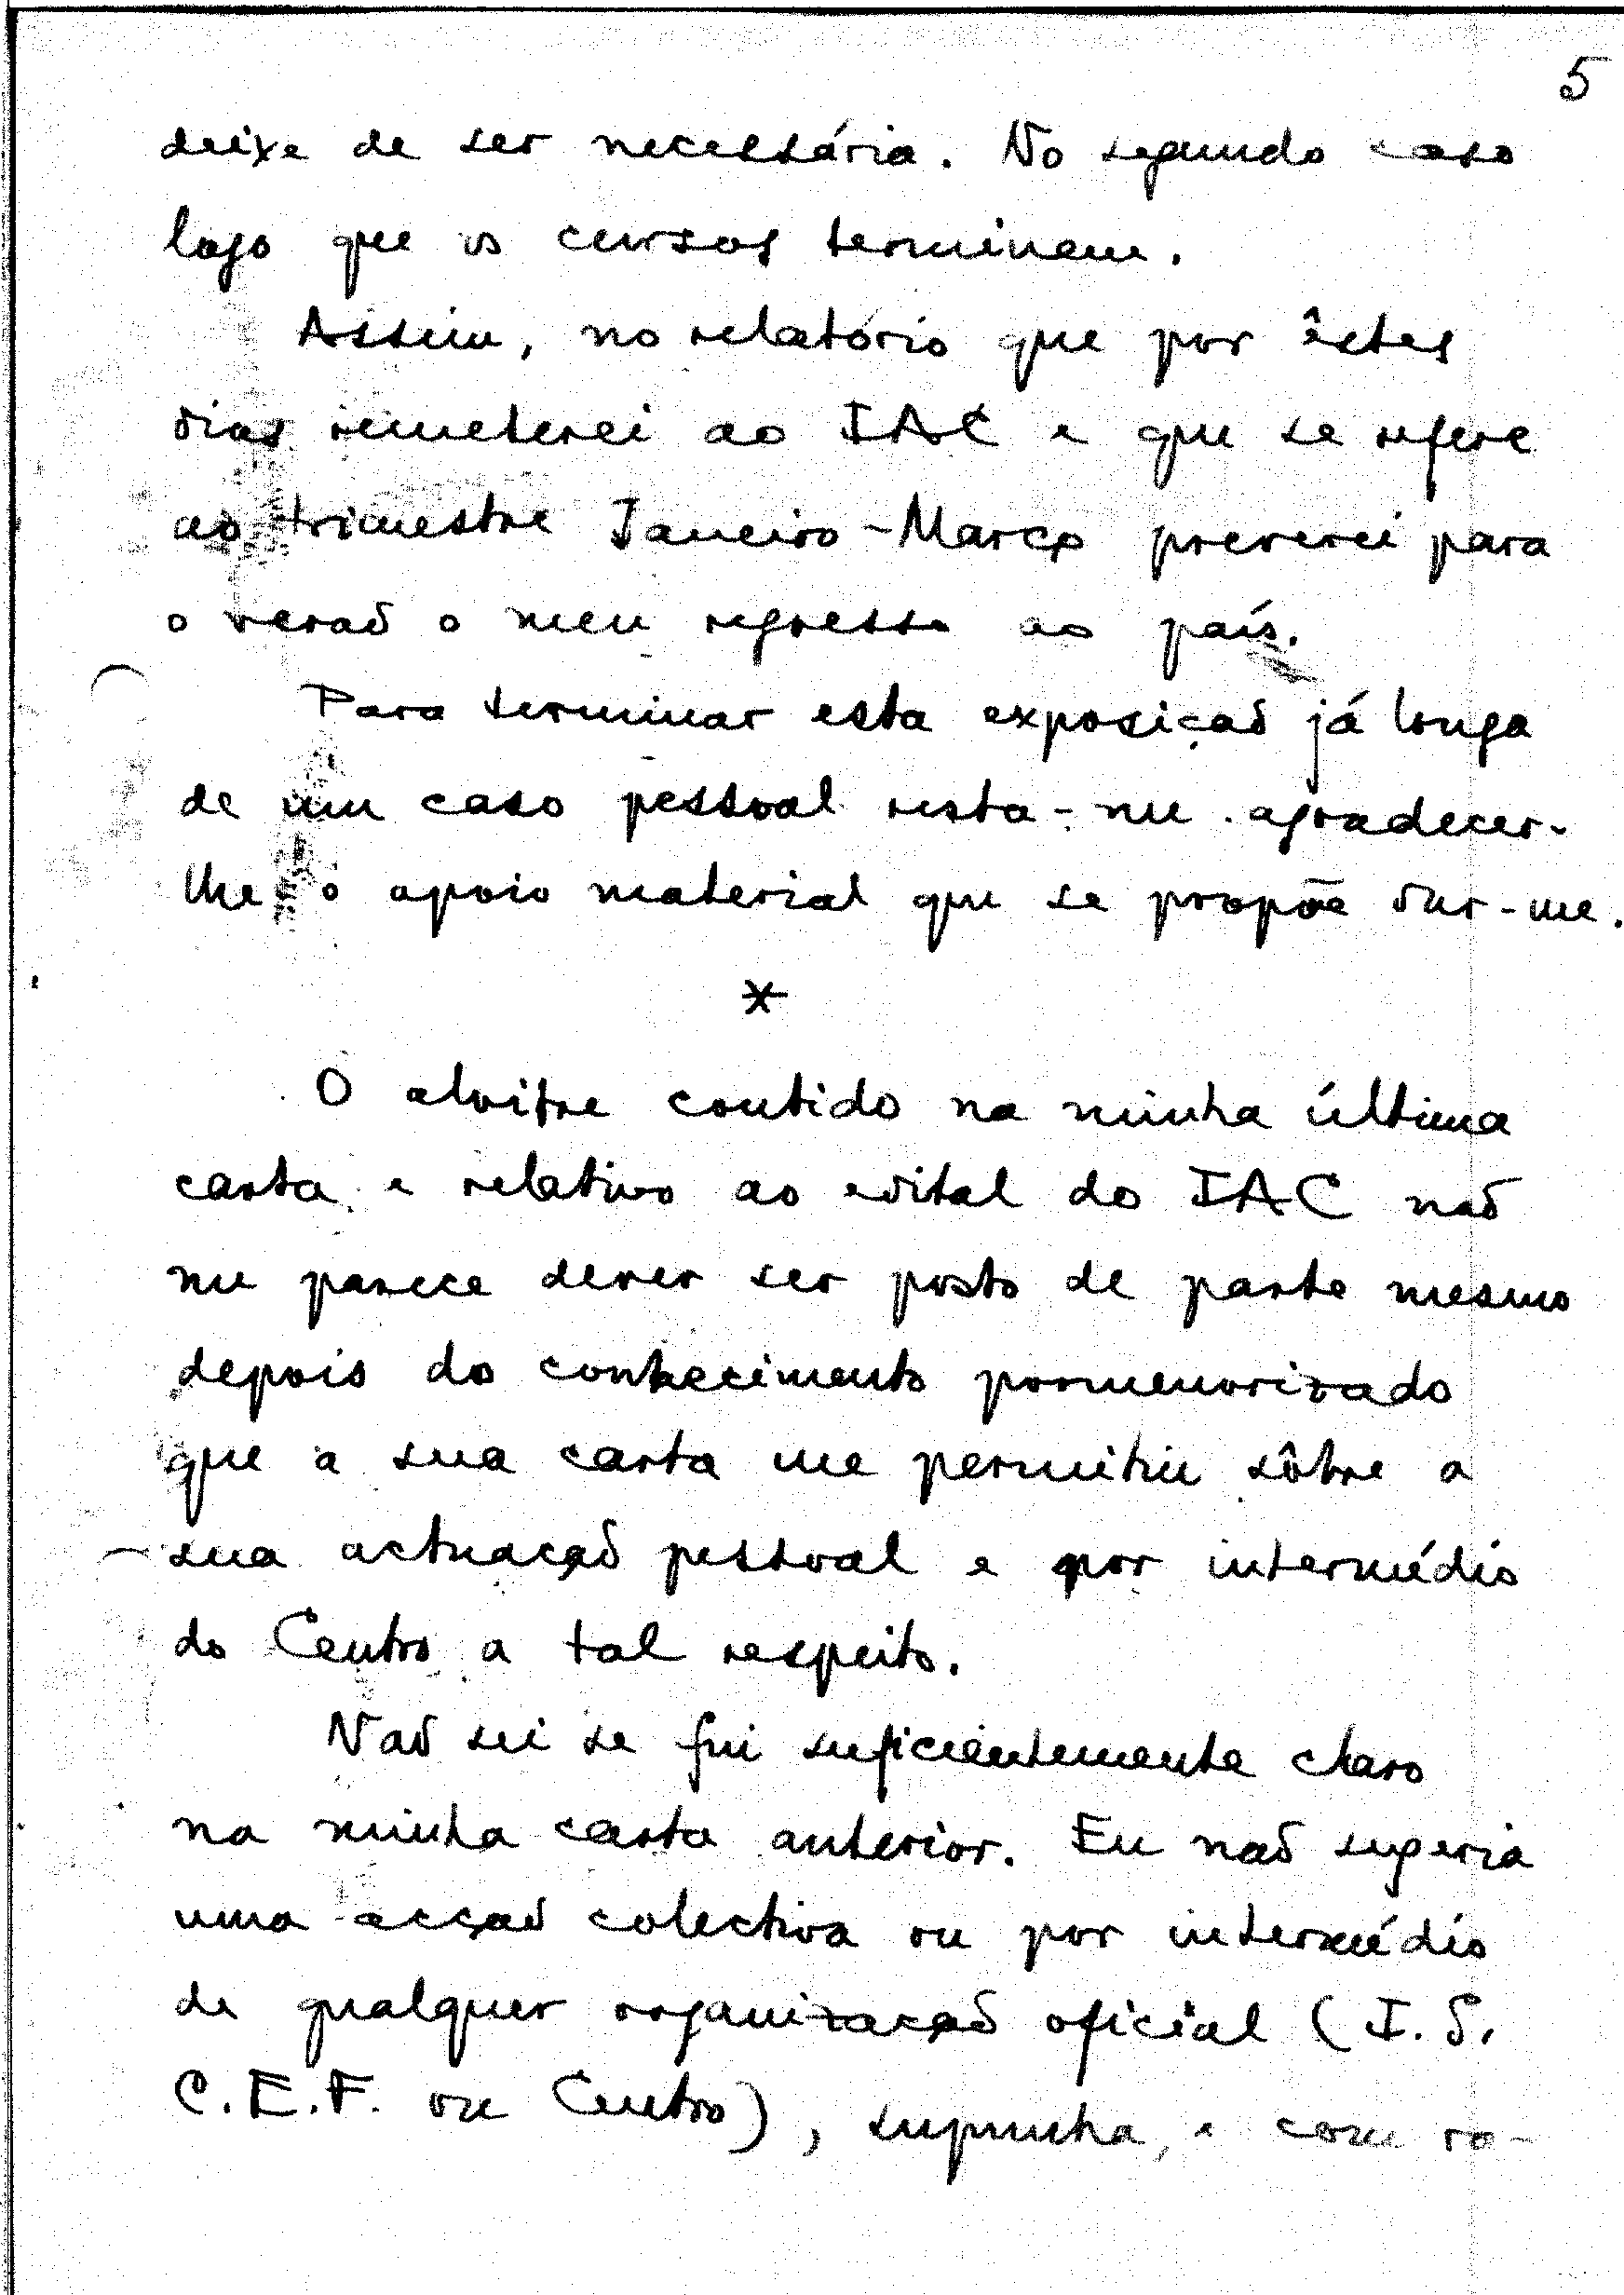 5
deixe de ser necessária. No segundo caso
logo que os cursos terminem.
Assim, no relatório que por êstes
dias remeterei ao IAC e que se refere
ao trimestre Janeiro-Março preverei para
o verão o meu regresso ao país.
Para terminar esta exposição já longa
de um caso pessoal resta-me agradecer-
lhe o apoio material que se propõe dar-me.
*
O alvitre contido na minha última
carta e relativo ao edital do IAC não
me parece dever ser posto de parte mesmo
depois do conhecimento pormenorizado
que a sua carta me permitiu sôbre a
sua actuação pessoal e por intermédio
do Centro a tal respeito.
Não sei se fui suficientemente claro
na minha carta anterior. Eu não sugeria
uma acção colectiva ou por intermédio
de qualquer organização oficial (I.S.
C.E.F. ou Centro), supunha, e com ra-